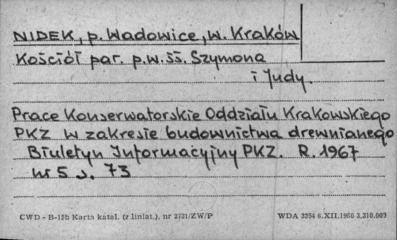 NIDEK, p. Wadowice, w. Kraków
Kościół par. p.w. śś. Szymona
i Judy.
Prace Konserwatorskie Oddziału Krakowskiego
PKZ w zakresie budownictwa drewnianego
Biuletyn Informacyjny PKZ. R. 1967
nr 5 s. 73
CWD - B-12b Karta katal. (z liniat.), nr 2721/ZW/P WDA 3254 6.XII.1966 3.210.003